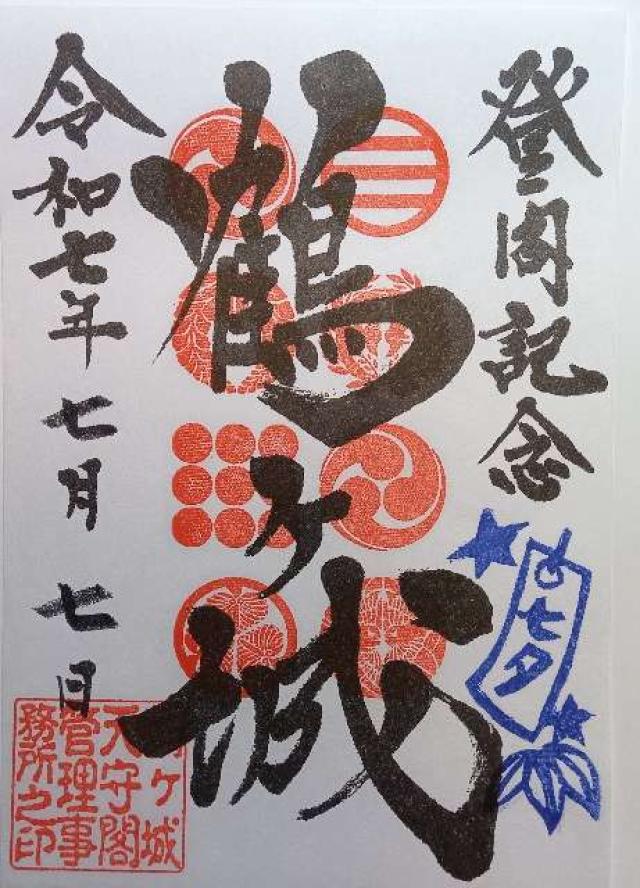 登閣記念
鶴ヶ城
七夕
令和七年 七月 七日
鶴ヶ城
天守閣
管理事
務所之印